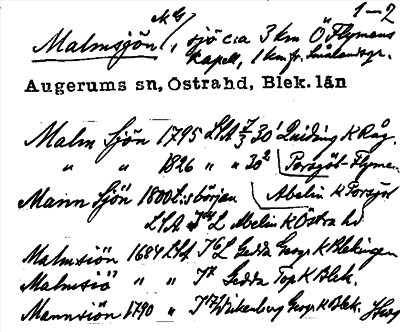 N G 1–2
Malmsjön, sjö c:a 3 km Ö Flymens
kapell, 1 km fr. Smålandsgr.
Augerums sn, Östra hd, Blek. län
Malm Sjön 1795 LSA 30¹ Quiding K Råg.
" " 1826 " " 30² Poregöt-Flymen
Mann Sjön 1800t:s början Abelin K Poregöt
LSA L Abelin K Östra hd
Malmsiön 1684 LSA J⁶L Gedda Geogr K Blekingen
Malmsiö " " J⁷ Gedda Top K Blek.
Mannsiön 1790 " J¹⁷ Wickenberg Geogr K Blek.